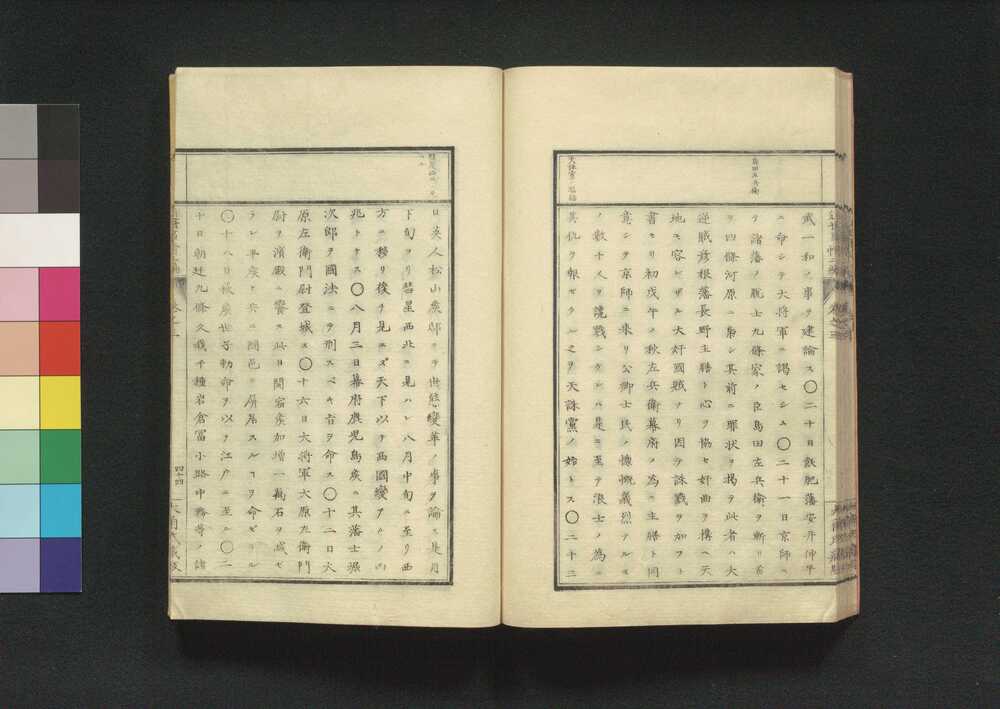 島田左兵衛
天誅黨ノ濫觴
武一和ノ事ヲ建論ス〇二十日飫肥藩安井仲平
ニ命シテ大将軍ニ謁セシム〇二十一日京師ニ
テ諸藩ノ脱士九條家ノ臣島田左兵衛ヲ斬リ首
ヲ四條河原ニ梟シ其前ニ罪状ヲ掲ク此者ハ大
逆賊彦根藩長野主膳ト心ヲ協セ奸曲ヲ搆ヘ天
地モ容レザル大奸國賊ナリ因テ誅戮ヲ加フト
書セリ初戊午ノ秋左兵衛幕府ノ為ニ主膳ト同
意シテ京師ニ来リ公卿士民ノ慷慨義烈ナルモ
ノ数十人ヲ讒戮シタルハ是ニ至テ浪士ノ為ニ
其仇ク報ゼラル之ヲ天誅黨ノ始トス〇二十三
日英人松山矦邸ニテ世態變革ノ事ヲ論ス是月
下旬ヨリ彗星西北ニ見ハレ八月中旬ニ至リ西
方ニ移リ後チ見エズ天下以テ西國變アルノ
兆トナス〇八月二日幕府鹿児島矦ニ其藩士堀
次郎ヲ國法ニテ刑スベキ旨ヲ命ス〇十二日大
原左衛門尉登城ス〇十六日大将軍大原左衛門
尉ヲ濱殿ニ饗ス此日間宿矦加増一萬石ヲ減セ
ラレ
〇十八日
十日朝廷九條久我千種岩倉冨小路中務等ノ諸
四十四